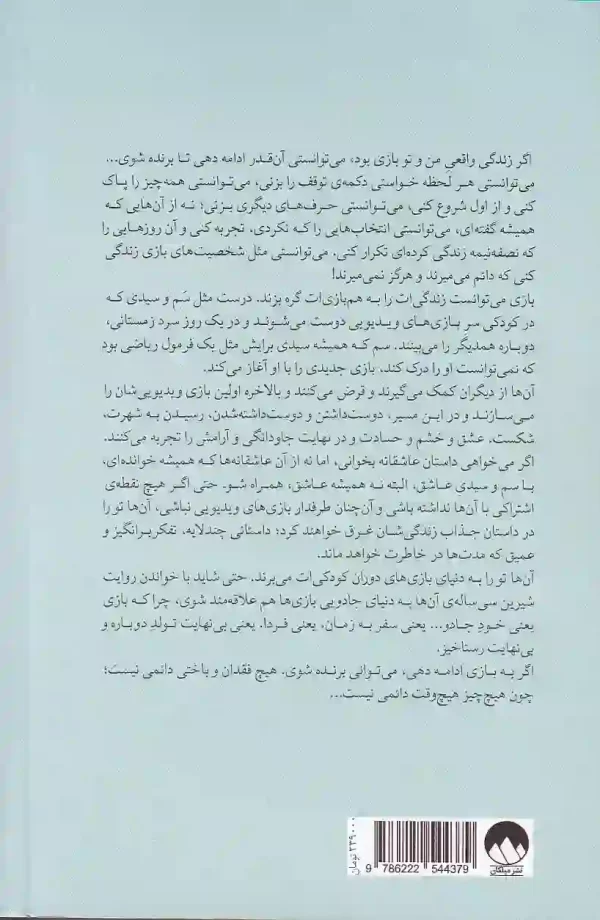 اگر زندگی واقعی من و تو بازی بود، می‌توانستی آن‌قدر ادامه دهی تا برنده شوی...
می‌توانستی هر لحظه خواستی دکمه‌ی توقف را بزنی، می‌توانستی همه‌چیز را پاک
کنی و از اول شروع کنی، می‌توانستی حرف‌های دیگری بزنی؛ نه از آن‌هایی که
همیشه گفته‌ای، می‌توانستی انتخاب‌هایی را که نکردی، تجربه کنی و آن روزهایی را
که نصفه‌نیمه زندگی کرده‌ای تکرار کنی. می‌توانستی مثل شخصیت‌های بازی زندگی
کنی که دائم می‌میرند و هرگز نمی‌میرند!
بازی می‌توانست زندگی‌ات را به هم‌بازی‌ات گره بزند. درست مثل سَم و سیدی که
در کودکی سر بازی‌های ویدیویی دوست می‌شوند و در یک روز سرد زمستانی،
دوباره همدیگر را می‌بینند. سم که همیشه سیدی برایش مثل یک فرمول ریاضی بود
که نمی‌توانست او را درک کند، بازی جدیدی را با او آغاز می‌کند.
آن‌ها از دیگران کمک می‌گیرند و قرض می‌کنند و بالاخره اولین بازی ویدیویی‌شان را
می‌سازند و در این مسیر، دوست‌داشتن و دوست‌داشته‌شدن، رسیدن به شهرت،
شکست، عشق و خشم و حسادت و در نهایت جاودانگی و آرامش را تجربه می‌کنند.
اگر می‌خواهی داستان عاشقانه بخوانی، اما نه از آن عاشقانه‌ها که همیشه خوانده‌ای،
با سم و سیدی عاشق، البته نه همیشه عاشق، همراه شو. حتی اگر هیچ نقطه‌ی
اشتراکی با آن‌ها نداشته باشی و آن‌چنان طرفدار بازی‌های ویدیویی نباشی، آن‌ها تو را
در داستان جذاب زندگی‌شان غرق خواهند کرد؛ داستانی چندلایه، تفکربرانگیز و
عمیق که مدت‌ها در خاطرت خواهد ماند.
آن‌ها تو را به دنیای بازی‌های دوران کودکی‌ات می‌برند. حتی شاید با خواندن روایت
شیرین سی‌ساله‌ی آن‌ها به دنیای جادویی بازی‌ها هم علاقه‌مند شوی، چرا که بازی
یعنی خودِ جادو... یعنی سفر به زمان، یعنی فردا. یعنی بی‌نهایت تولدِ دوباره و
بی‌نهایت رستاخیز.
اگر به بازی ادامه دهی، می‌توانی برنده شوی. هیچ فقدان و باختی دائمی نیست؛
چون هیچ‌چیز هیچ‌وقت دائمی نیست...
۲۳۹۰۰۰ تومان
9 786222 544379
نشر میلکان